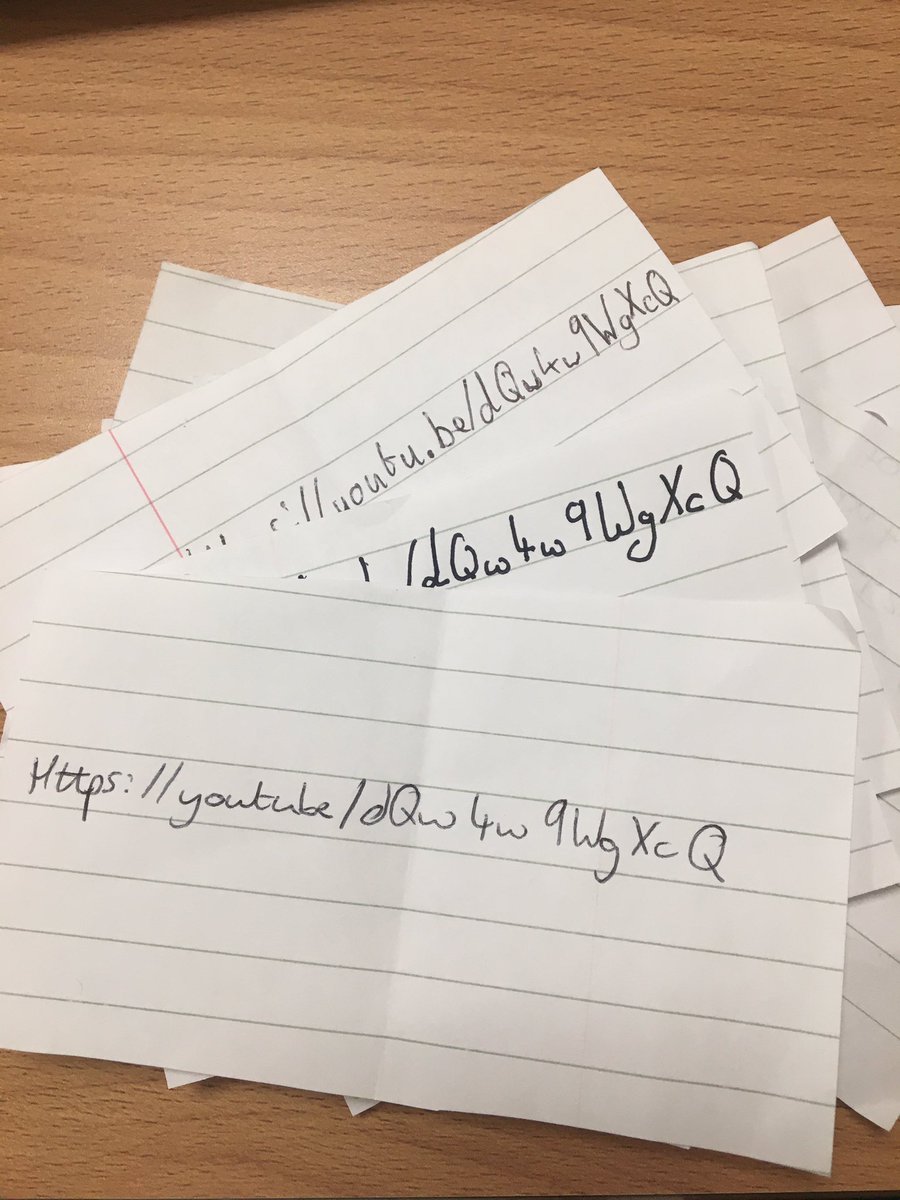 ://youtu.be/dQw4w9WgXcQ
/dQw4w9WgXcQ
Https://youtube/dQw4w9WgXcQ